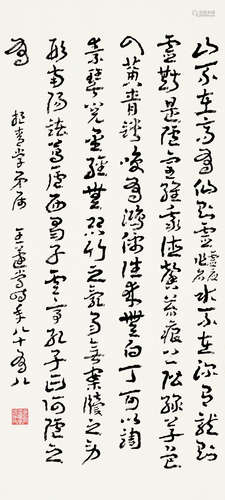 山不在高有仙則靈水不在深有龍則
靈斯是陋室維吾德馨苔痕上階綠草色
入簾青談笑有鴻儒往來無白丁可以調
素琴閱金經無絲竹之亂耳無案牘之勞
形南陽諸葛廬西蜀子雲亭孔子云何陋之
有
青學弟屬 王蘧常時年八十有八